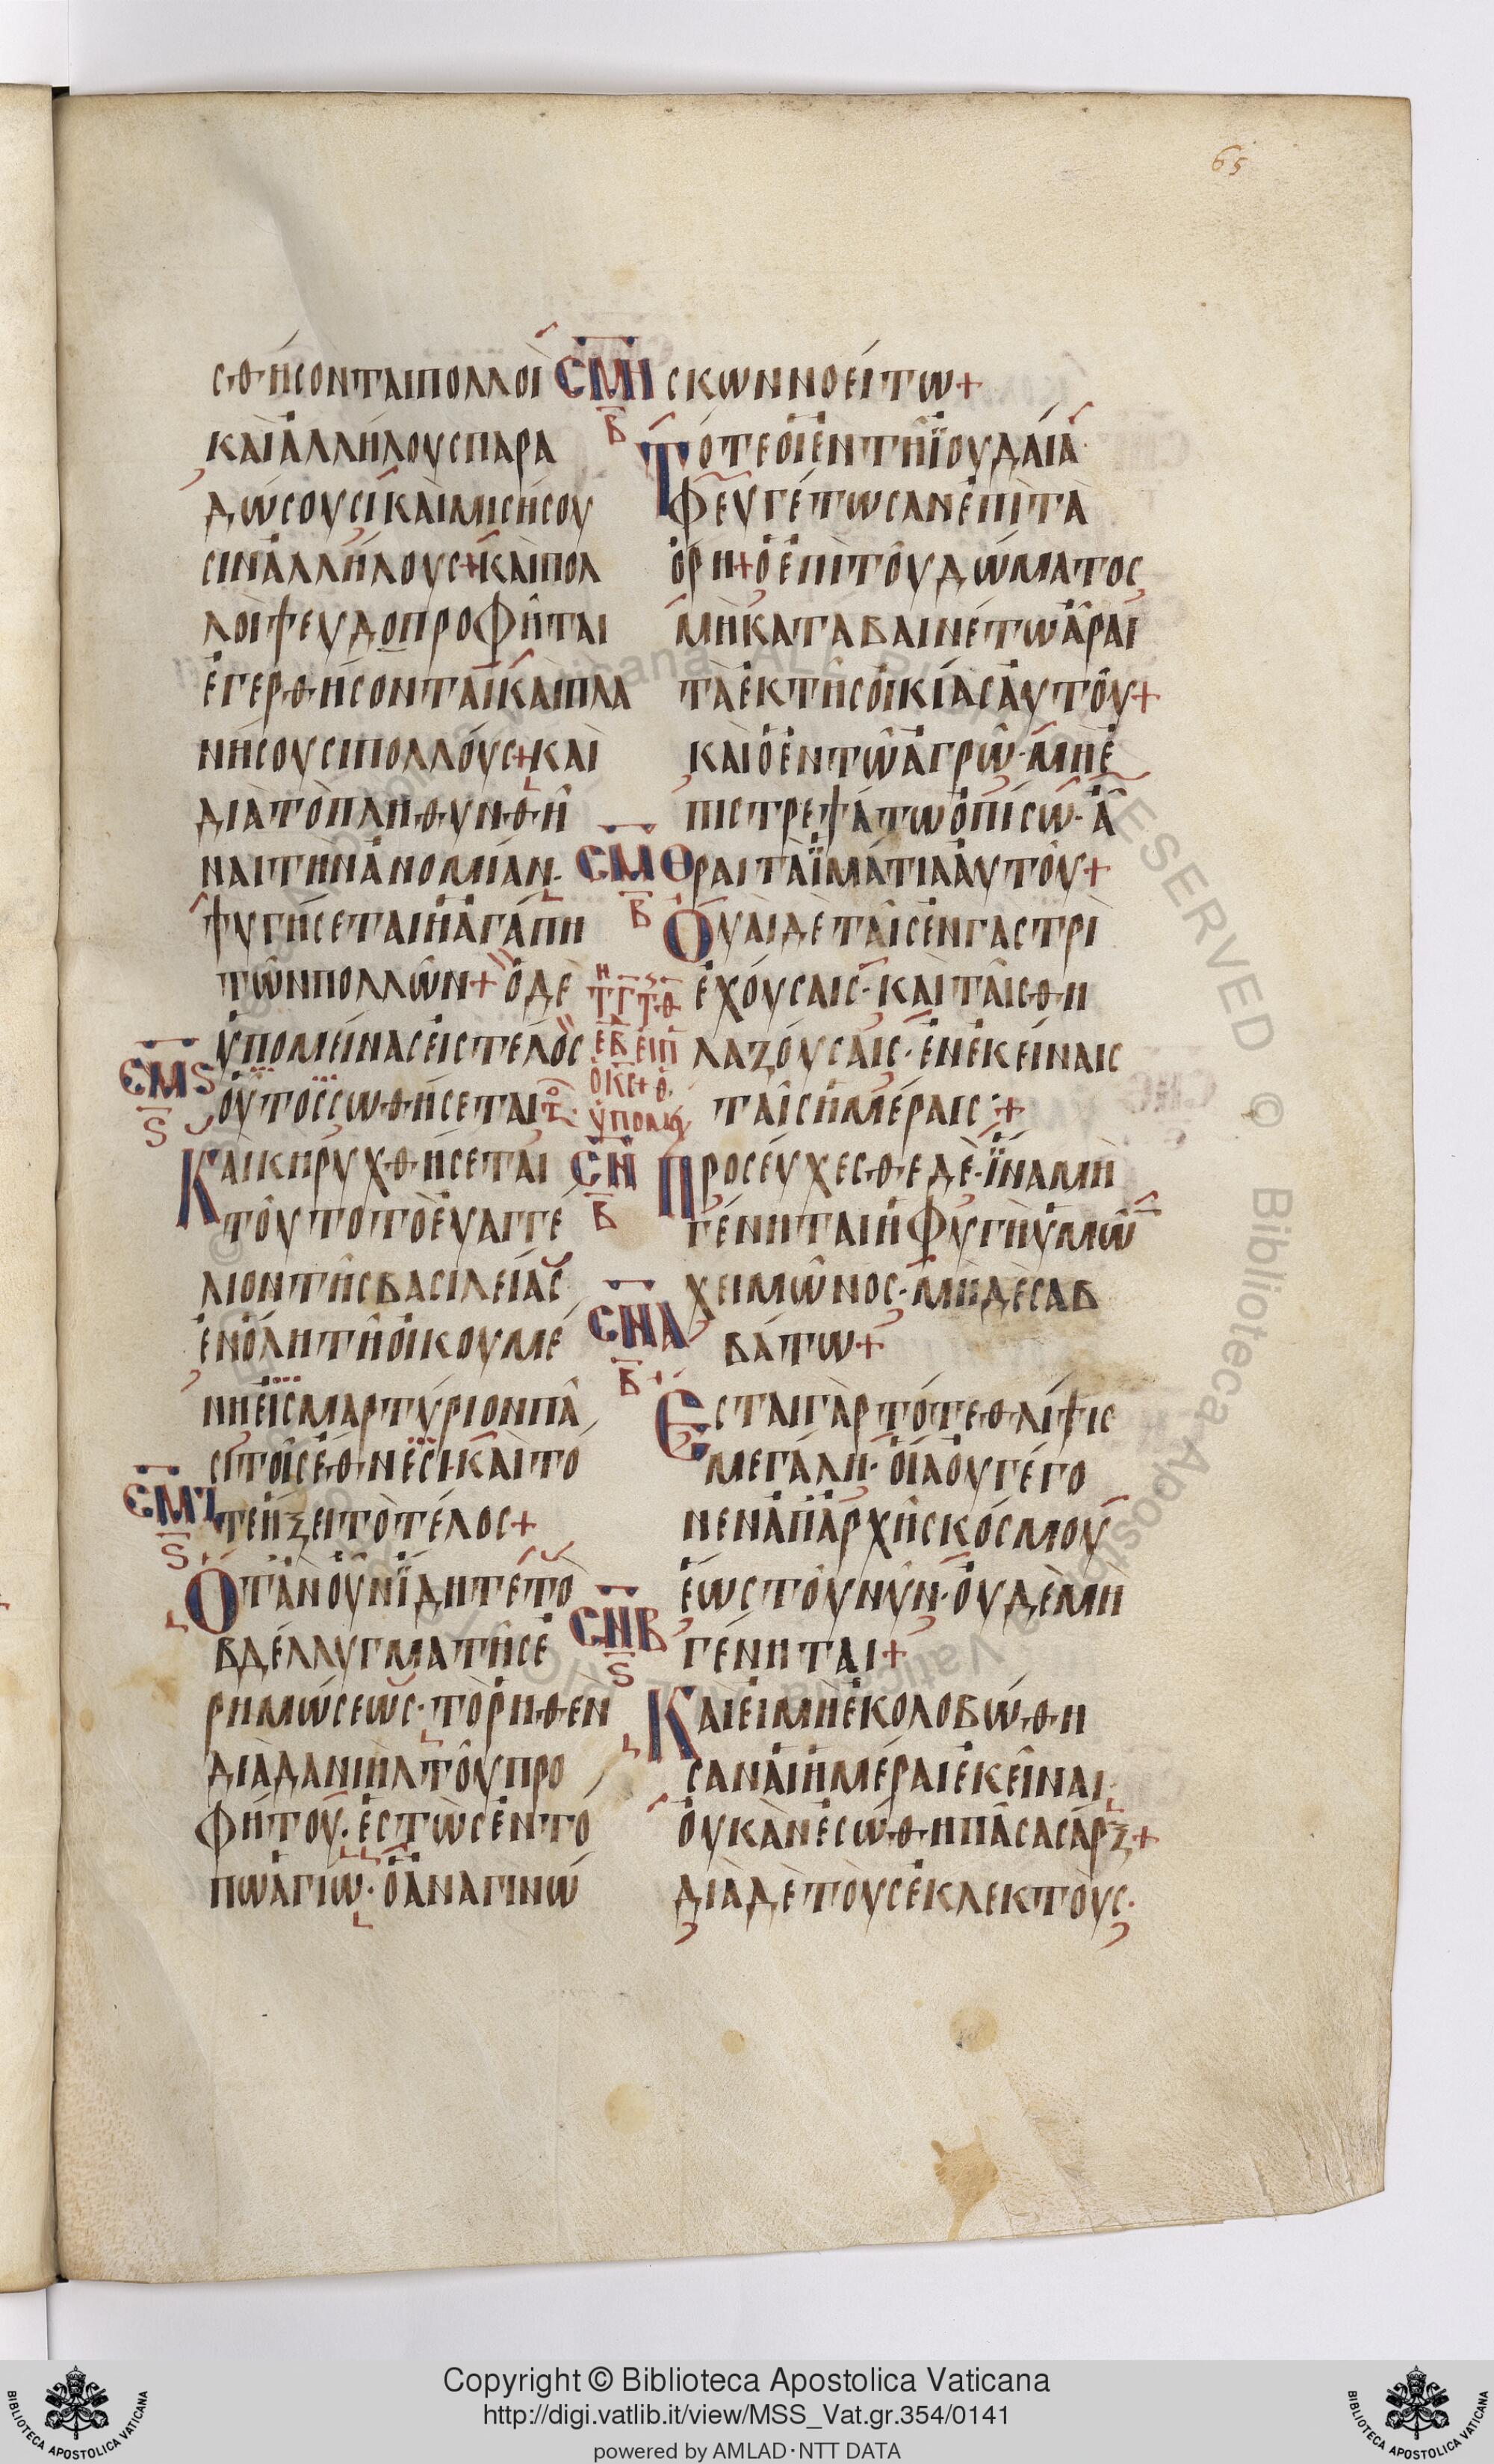 65
σθήσονται πολλοὶ
καὶ ἀλλήλους παρα
δώσουσι καὶ μισήσου
σιν ἀλλήλους + καὶ πολ
λοὶ ψευδοπροφῆται
ἐγερθήσονται καὶ πλα
νήσουσι πολλούς + καὶ
διὰ τὸ πληθυνθῆ
ναι τὴν ἀνομίαν ·
ψυγήσεται ἡ ἀγάπη
τῶν πολλῶν + ὁ δὲ
ὑπομείνας εἰς τέλος
ϹΜϚ
Ϛ
οὗτος σωθήσεται
Καὶ κηρυχθήσεται
τοῦτο τὸ εὐαγγέ
λιον τῆς βασιλείας
ἐν ὅλῃ τῇ οἰκουμέ
νῃ εἰς μαρτύριον πᾶ
σι τοῖς ἔθνεσι · καὶ τό
ϹΜΖ
Ϛ
τε ἥξει τὸ τέλος +
Ὅταν οὖν ἴδητε τὸ
βδέλυγμα τῆς ἐ
ρημώσεως · τὸ ῥηθὲν
διὰ Δανιὴλ τοῦ προ
φήτου · ἑστὼς ἐν τό
πῳ ἁγίῳ · ὁ ἀναγινώ
ϹΜΗ
Β
σκων νοείτω +
Τότε οἱ ἐν τῇ Ἰουδαίᾳ
φευγέτωσαν ἐπὶ τὰ
ὄρη + ὁ ἐπὶ τοῦ δώματος
μὴ καταβαινέτω ἆραι
τὰ ἐκ τῆς οἰκίας αὐτοῦ +
καὶ ὁ ἐν τῷ ἀγρῷ · μὴ ἐ
πιστρεψάτω ὀπίσω · ἆ
ϹΜΘ
Β
ραι τὰ ἱμάτια αὐτοῦ +
Οὐαὶ δὲ ταῖς ἐν γαστρὶ
ἐχούσαις · καὶ ταῖς θη
λαζούσαις · ἐν ἐκείναις
ταῖς ἡμέραις · +
ϹΝ
Β
Προσεύχεσθε δὲ · ἵνα μὴ
γένηται ἡ φυγὴ ὑμῶ̅
χειμῶνος · μηδὲ σαβ
βάτω +
ϹΝΑ
Β
Ἔσται γὰρ τότε θλίψις
μεγάλη · οἵα οὐ γέγο
νεν ἀπ' ἀρχῆς κόσμου
ἕως τοῦ νῦν · οὐδὲ μὴ
γένηται +
ϹΝΒ
Ϛ
Καὶ εἰ μὴ ἐκολοβώθη
σαν αἱ ἡμέραι ἐκεῖναι ·
οὐκ ἂν ἐσώθη πᾶσα σάρξ +
διὰ δὲ τοὺς ἐκλεκτούς ·
Copyright © Biblioteca Apostolica Vaticana
http://digi.vatlib.it/view/MSS_Vat.gr.354/0141
powered by AMLAD·NTT DATA
BIBLIOTECA APOSTOLICA VATICANA
BIBLIOTECA APOSTOLICA VATICANA